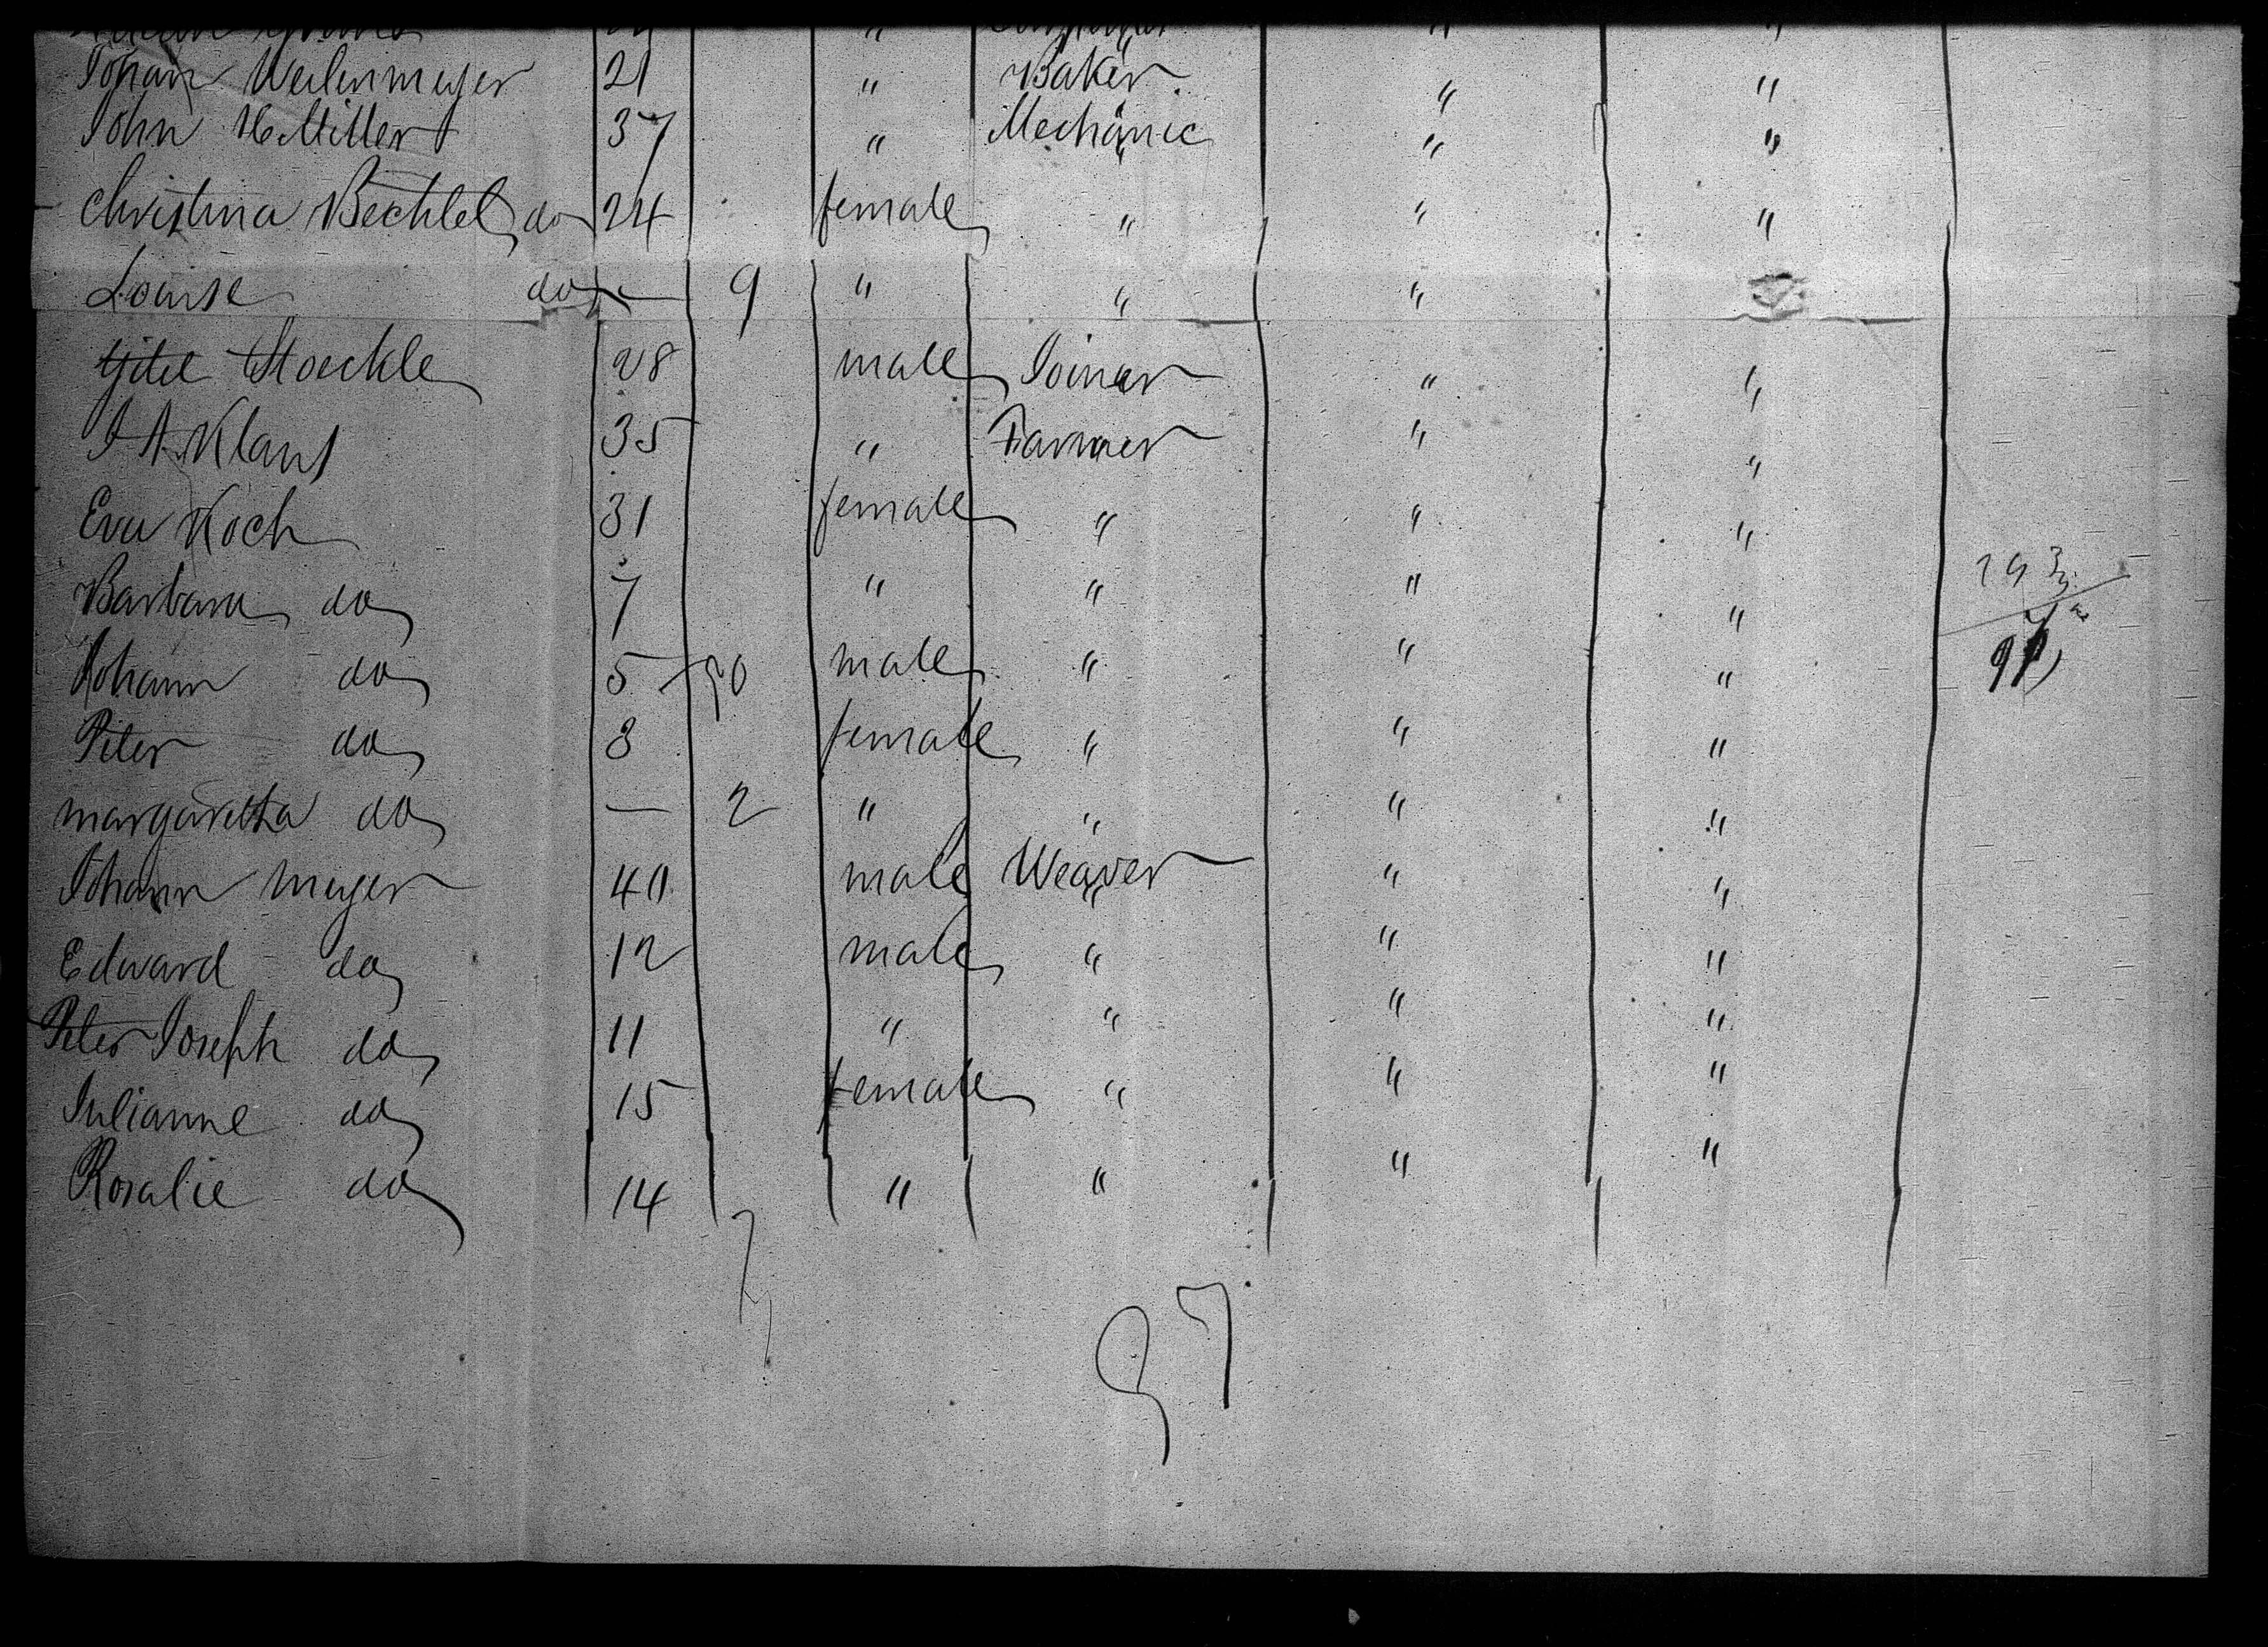 Johan Weilenmeyer 21 " Baker " " "
John H Miller 37 " Mechanic " " "
Christina Bechtel do 24 female " " "
Louise do — 9 " " "
Stoeckle 28 male Joiner " " "
J A Klaus 35 " Farmer " "
Eva Koch 31 female " " "
Barbara do 7 " " " "
Johann do 5 male " " "
Peter do 3 female " " "
margaretha do — 2 " " " "
Johann meyer 40 male Weaver " " "
Edward do 12 male " " "
Peter Joseph do 11 " " " "
Julianne do 15 female " " "
Rosalie do 14 " " " "
97